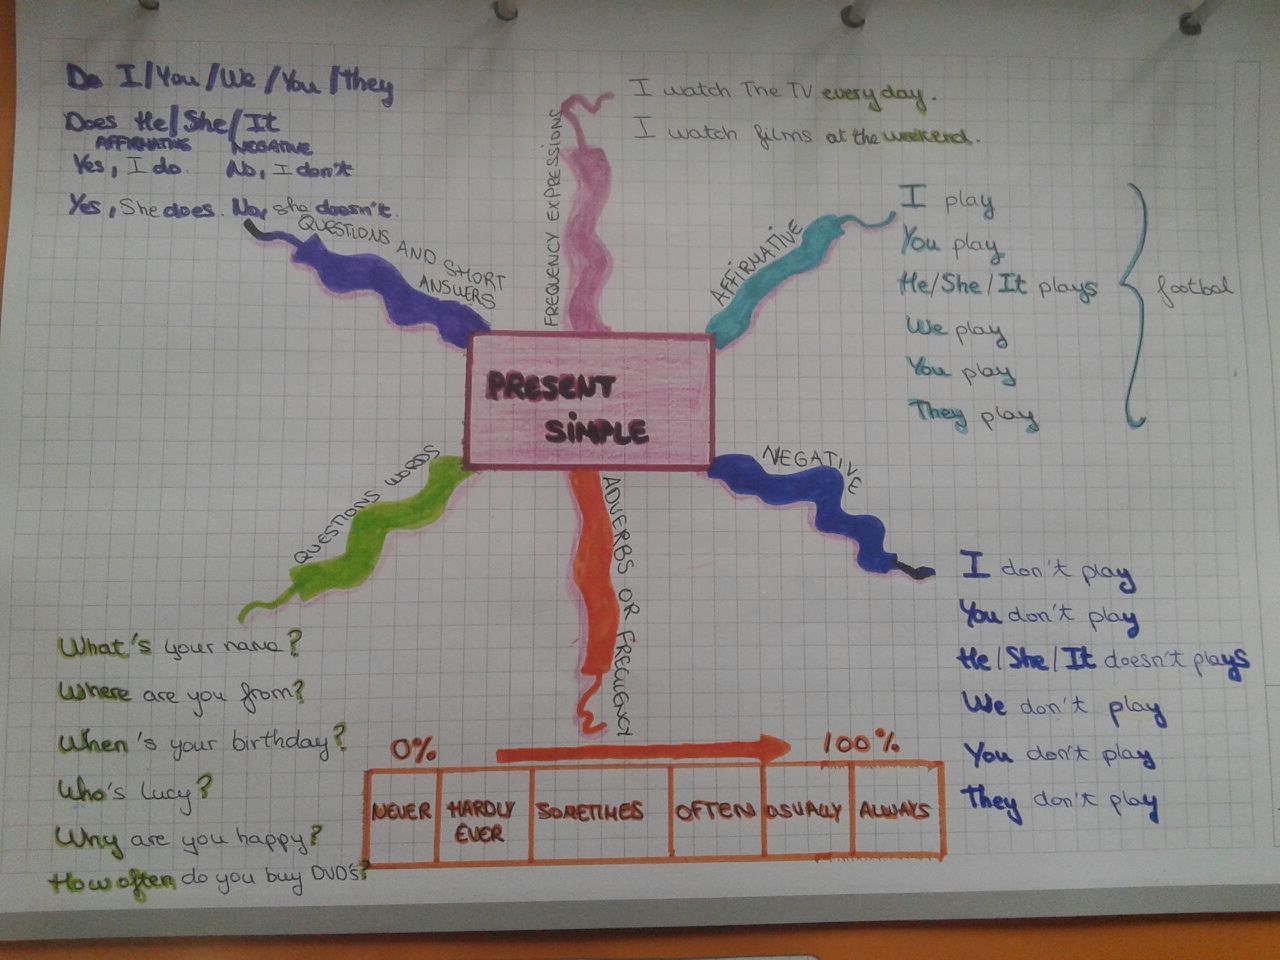 Do I/You/We/You/They
Does He/She/It
AFFIRMATIVE NEGATIVE
Yes, I do. No, I don't
Yes, She does. No, she doesn't.
QUESTIONS AND SHORT
ANSWERS
FREQUENCY EXPRESSIONS
I watch The TV every day.
I watch films at the weekend.
AFFIRMATIVE
I play
You play
He/She/It plays
We play
You play
They play
footbal
PRESENT
SIMPLE
NEGATIVE
I don't play
You don't play
He/She/It doesn't plays
We don't play
You don't play
They don't play
QUESTIONS WORDS
What's your name?
Where are you from?
When's your birthday?
Who's Lucy?
Why are you happy?
How often do you buy DVD'S?
ADVERBS OR FRECUENCY
0% 100%
NEVER HARDLY EVER SOMETIMES OFTEN USUALLY ALWAYS